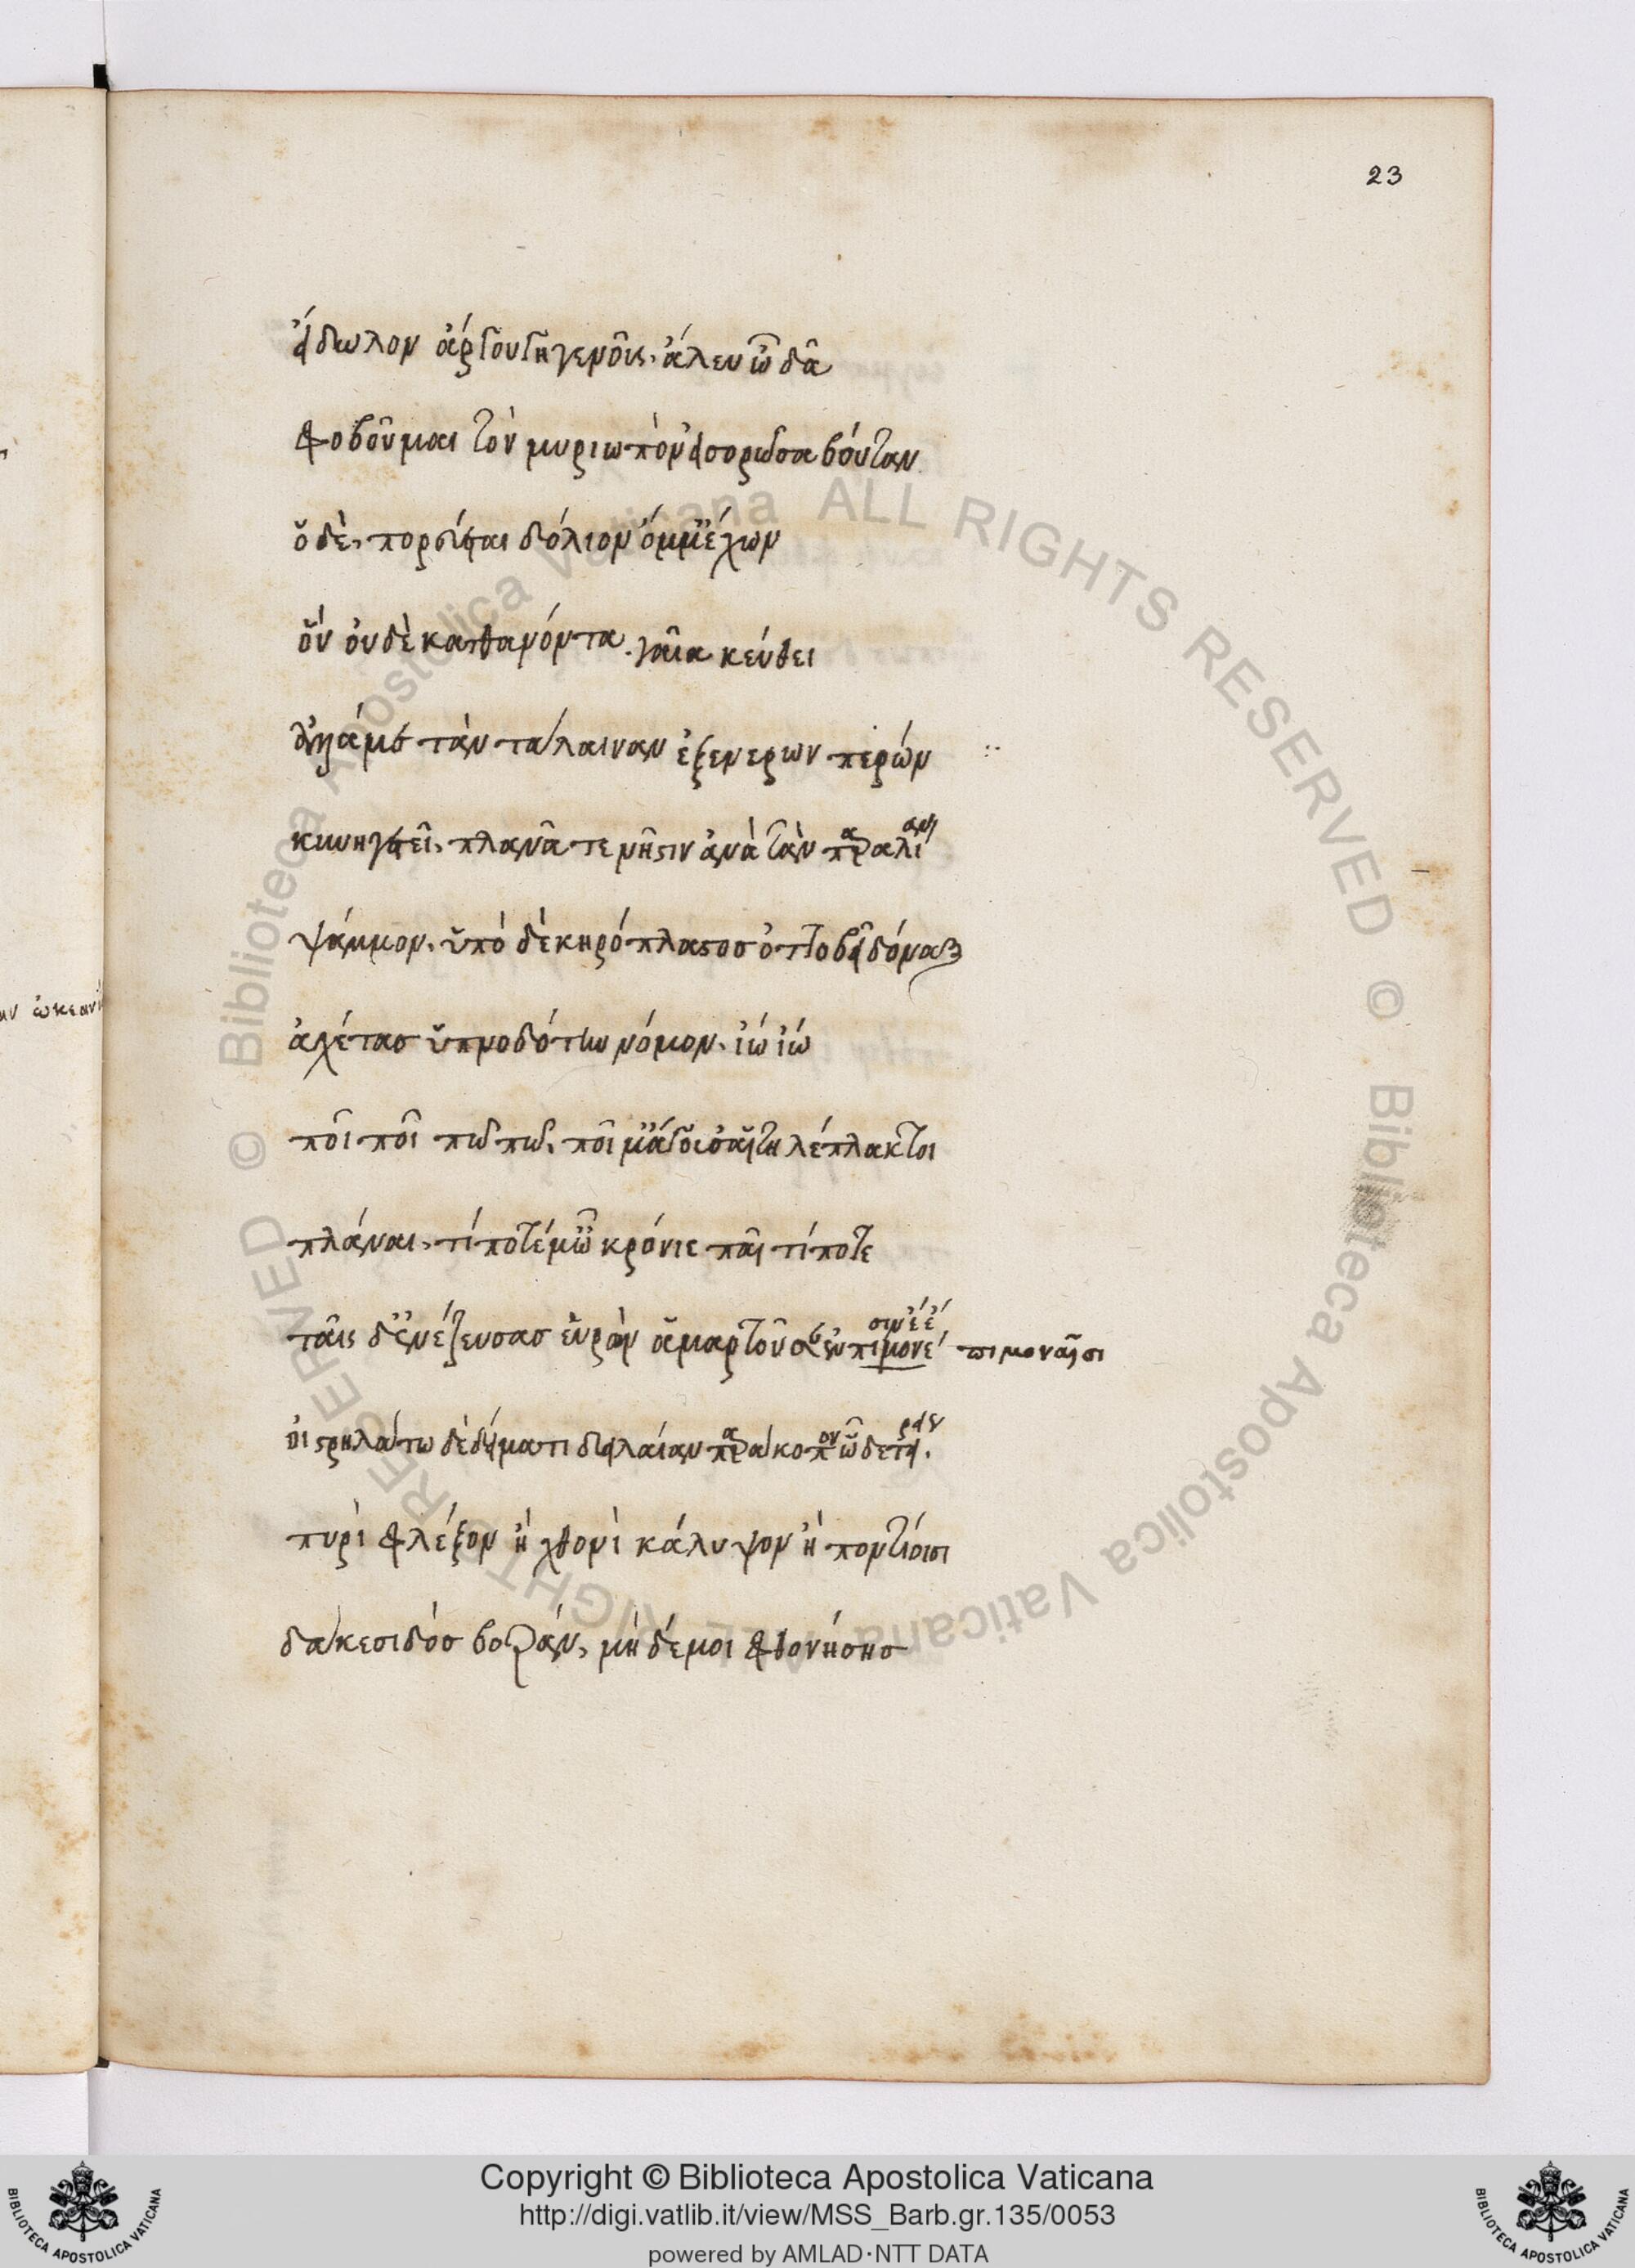 23
εἴδωλον ἄργου γηγενοῦς. ἄλευ ὦ δᾶ
φοβοῦμαι τὸν μυριωπὸν εἰσορῶσα βούταν
ὁ δὲ, πορεύεται δόλιον ὄμμ' ἔχων
ὃν οὐδὲ κατθανόντα. γαῖα κεύθει
ἀλλά με τὰν τάλαιναν ἐξ ἐνέρων περῶν
κυνηγετεῖ, πλανᾶ τε νῆστιν ἀνὰ τὰν παραλίαν
ψάμμον. ὑπὸ δὲ κηρόπλαστος ὀττοβεῖ δόναξ
ἀχέτας ὑπνοδόταν νόμον. ἰώ ἰώ
ποῖ ποῖ πῶ πῶ, ποῖ μ' ἄγουσ' αἱ τηλέπλακτοι
πλάναι, τί ποτέ μ' ὦ κρόνιε παῖ τί ποτε
ταῖς δ' ἐνέζευξας εὑρὼν ἁμαρτοῦσαν ἐν πημονέ πημοναῖσι
σιν ἐ ἐ
οἰστρηλάτω δὲ δείματι δειλαίαν παράκοπον ὧδε τείρεις.
πυρὶ φλέξον ἢ χθονὶ κάλυψον ἢ ποντίοισι
δάκεσι δὸς βορὰν, μὴ δέ μοι φθονήσης
Copyright © Biblioteca Apostolica Vaticana
http://digi.vatlib.it/view/MSS_Barb.gr.135/0053
powered by AMLAD·NTT DATA
BIBLIOTECA APOSTOLICA VATICANA
BIBLIOTECA APOSTOLICA VATICANA
© Biblioteca Apostolica Vaticana ALL RIGHTS RESERVED © Biblioteca Apostolica Vaticana ALL RIGHTS RESERVED